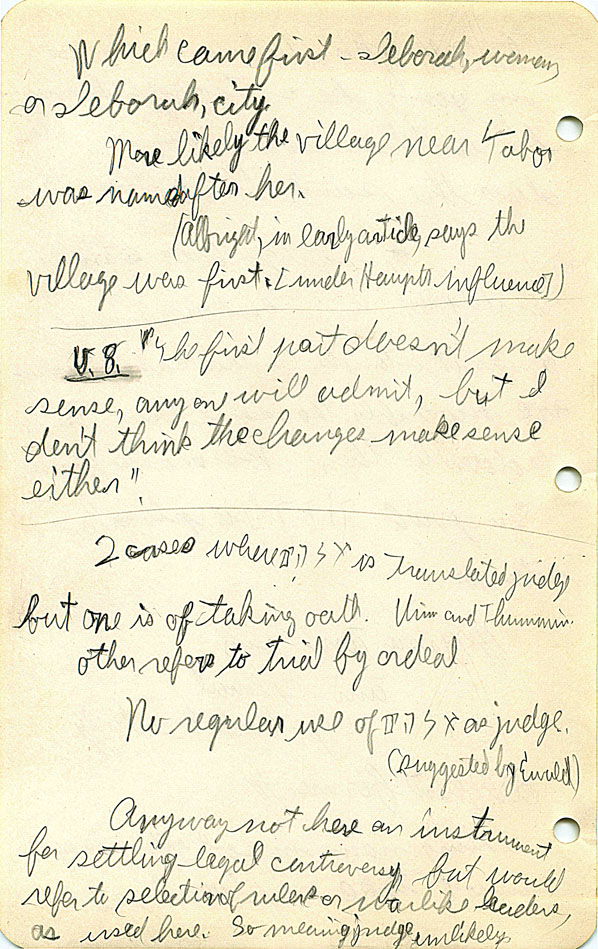 Which came first - Deborah, woman,
or Deborah, city.
More likely the village near Tabor
was named after her.
(Albright, in early article, says the
village was first. [under Haupt's influence])
V. 8. "The first part doesn't make
sense, anyone will admit, but I
don't think the changes make sense
either".
2 cases where אלהים is translated judge,
but one is of taking oath. Urim and Thummim.
other refers to trial by ordeal
No regular use of אלהים as judge.
(suggested by Ewald)
Anyway not here an instrument
for settling legal controversy, but would
refer to selection of rulers or warlike leaders,
as used here. So meaning judge, unlikely